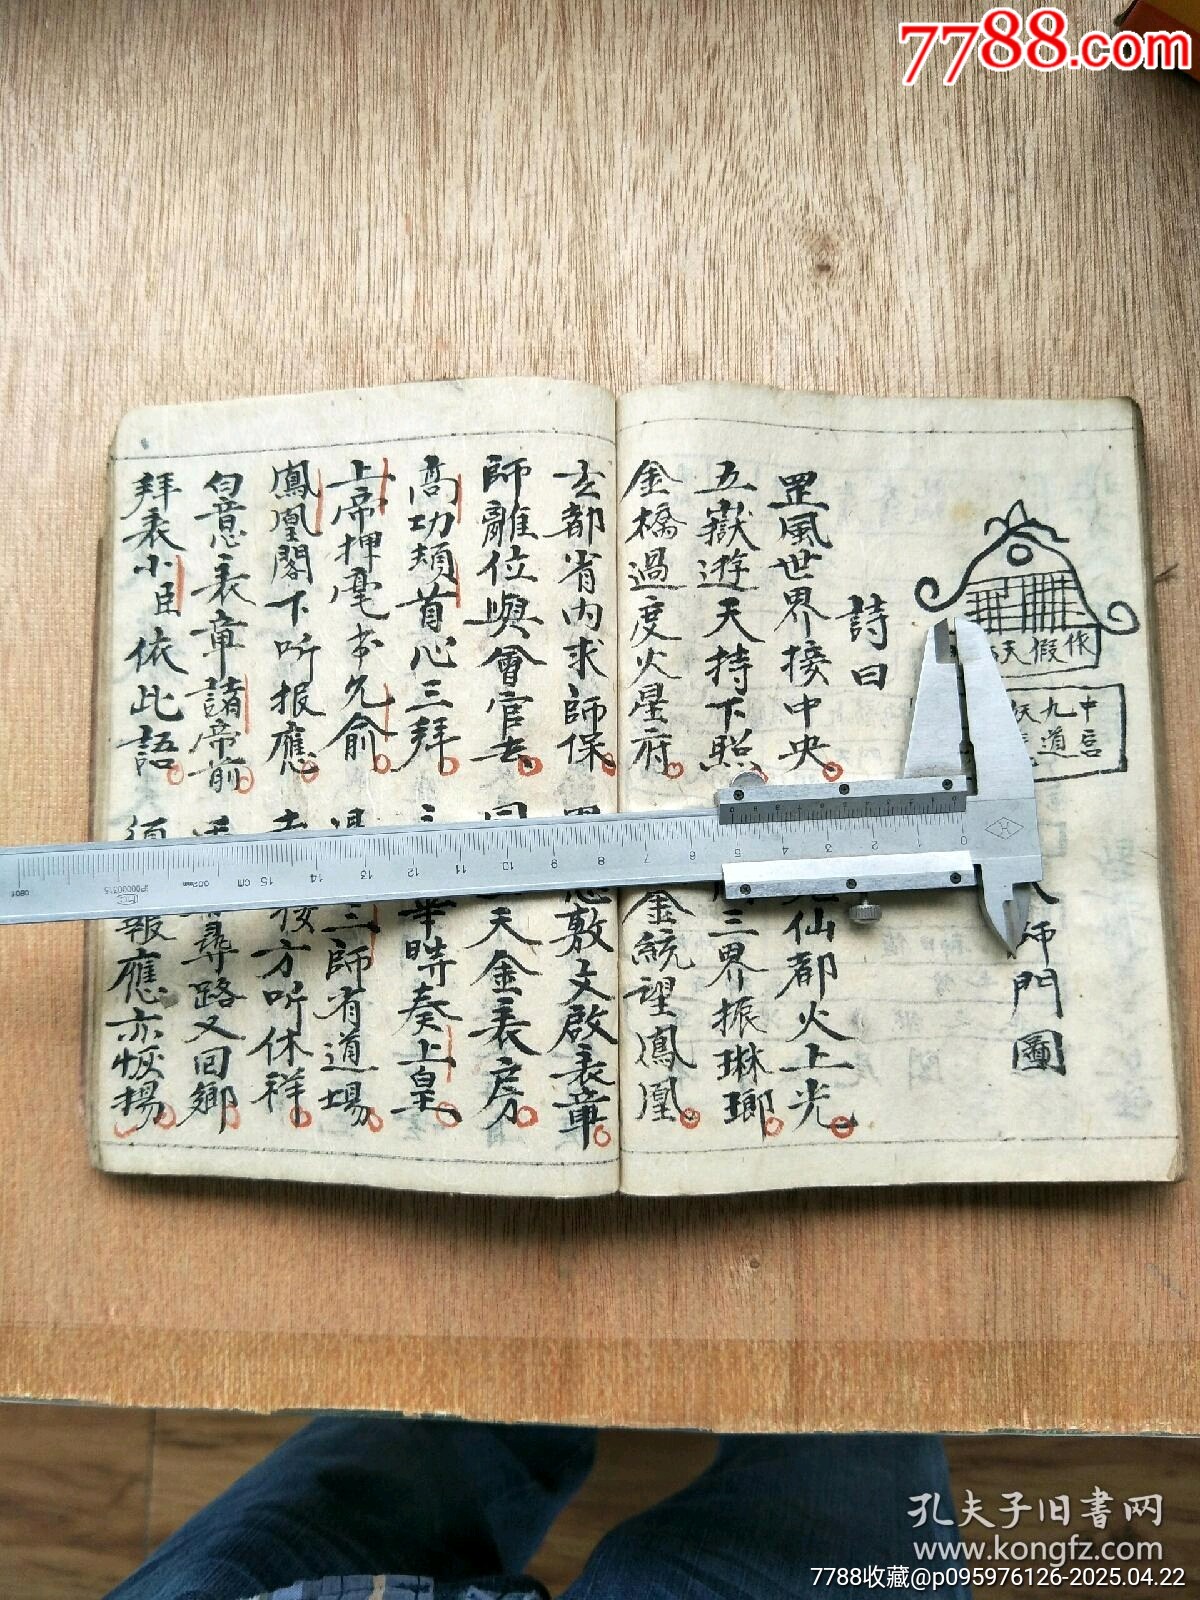 7788.com
作假天
中言
九道
師門圖
詩曰
罡風世界接中央
仙都火上光
五嶽遊天持下照
三界振琳瑯
金橋過度火星府
金統望鳳凰
玄都省内求師保
敷文啟表章
師離位與會官去
天金表房
高功頬首心三拜
時奏上皇
上帝押毫书允俞
三師有道場
鳳凰閣下听报應
方听休祥
匀意表章諸帝前
尋路又回鄉
拜表小臣依此語
報應亦恢揚
0 1 2 3 4 5 6 7 8 9 10 11 12 13 14 15 cm
孔夫子旧書网
www.kongfz.com
7788收藏@p095976126-2025.04.22